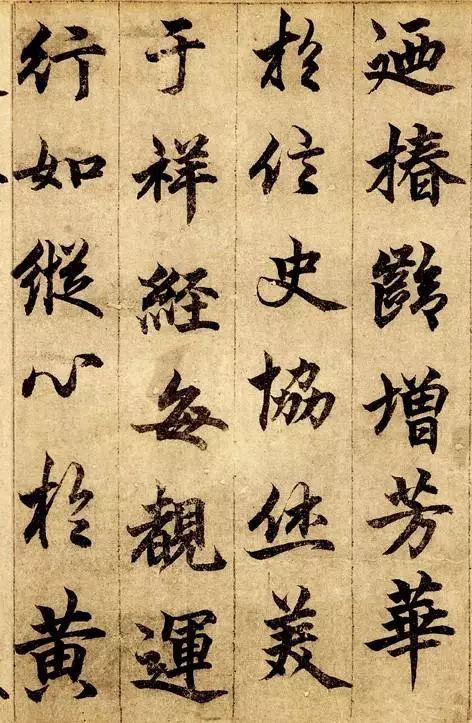 迺椿齡增芳華
於信史協休美
于祥經每覩運
行如縱心於黃